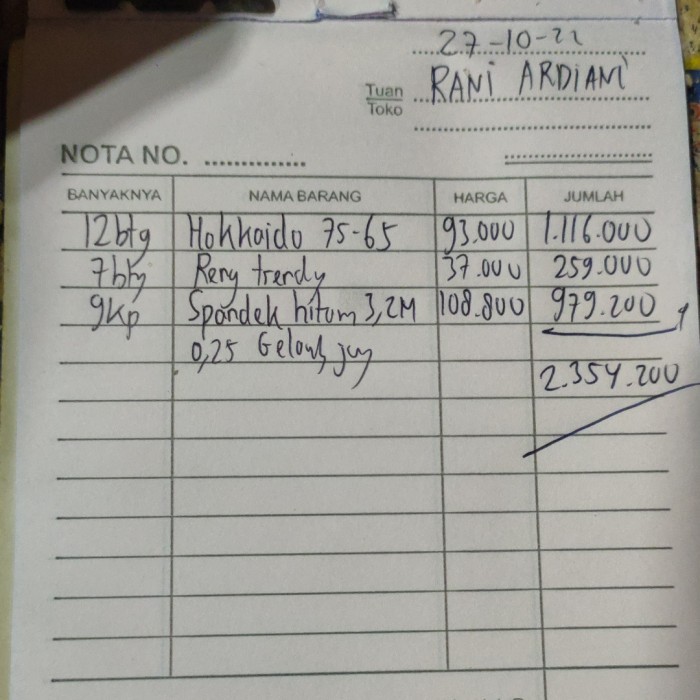 27-10-22
Tuan
Toko
RANI ARDIANI
NOTA NO.
BANYAKNYA NAMA BARANG HARGA JUMLAH
12 btg Hokkaido 75-65 93.000 1.116.000
7 btg Reng trendy 37.000 259.000
9 Kp Spandek hitum 3,2M 108.800 979.200
0,25
2.354.200